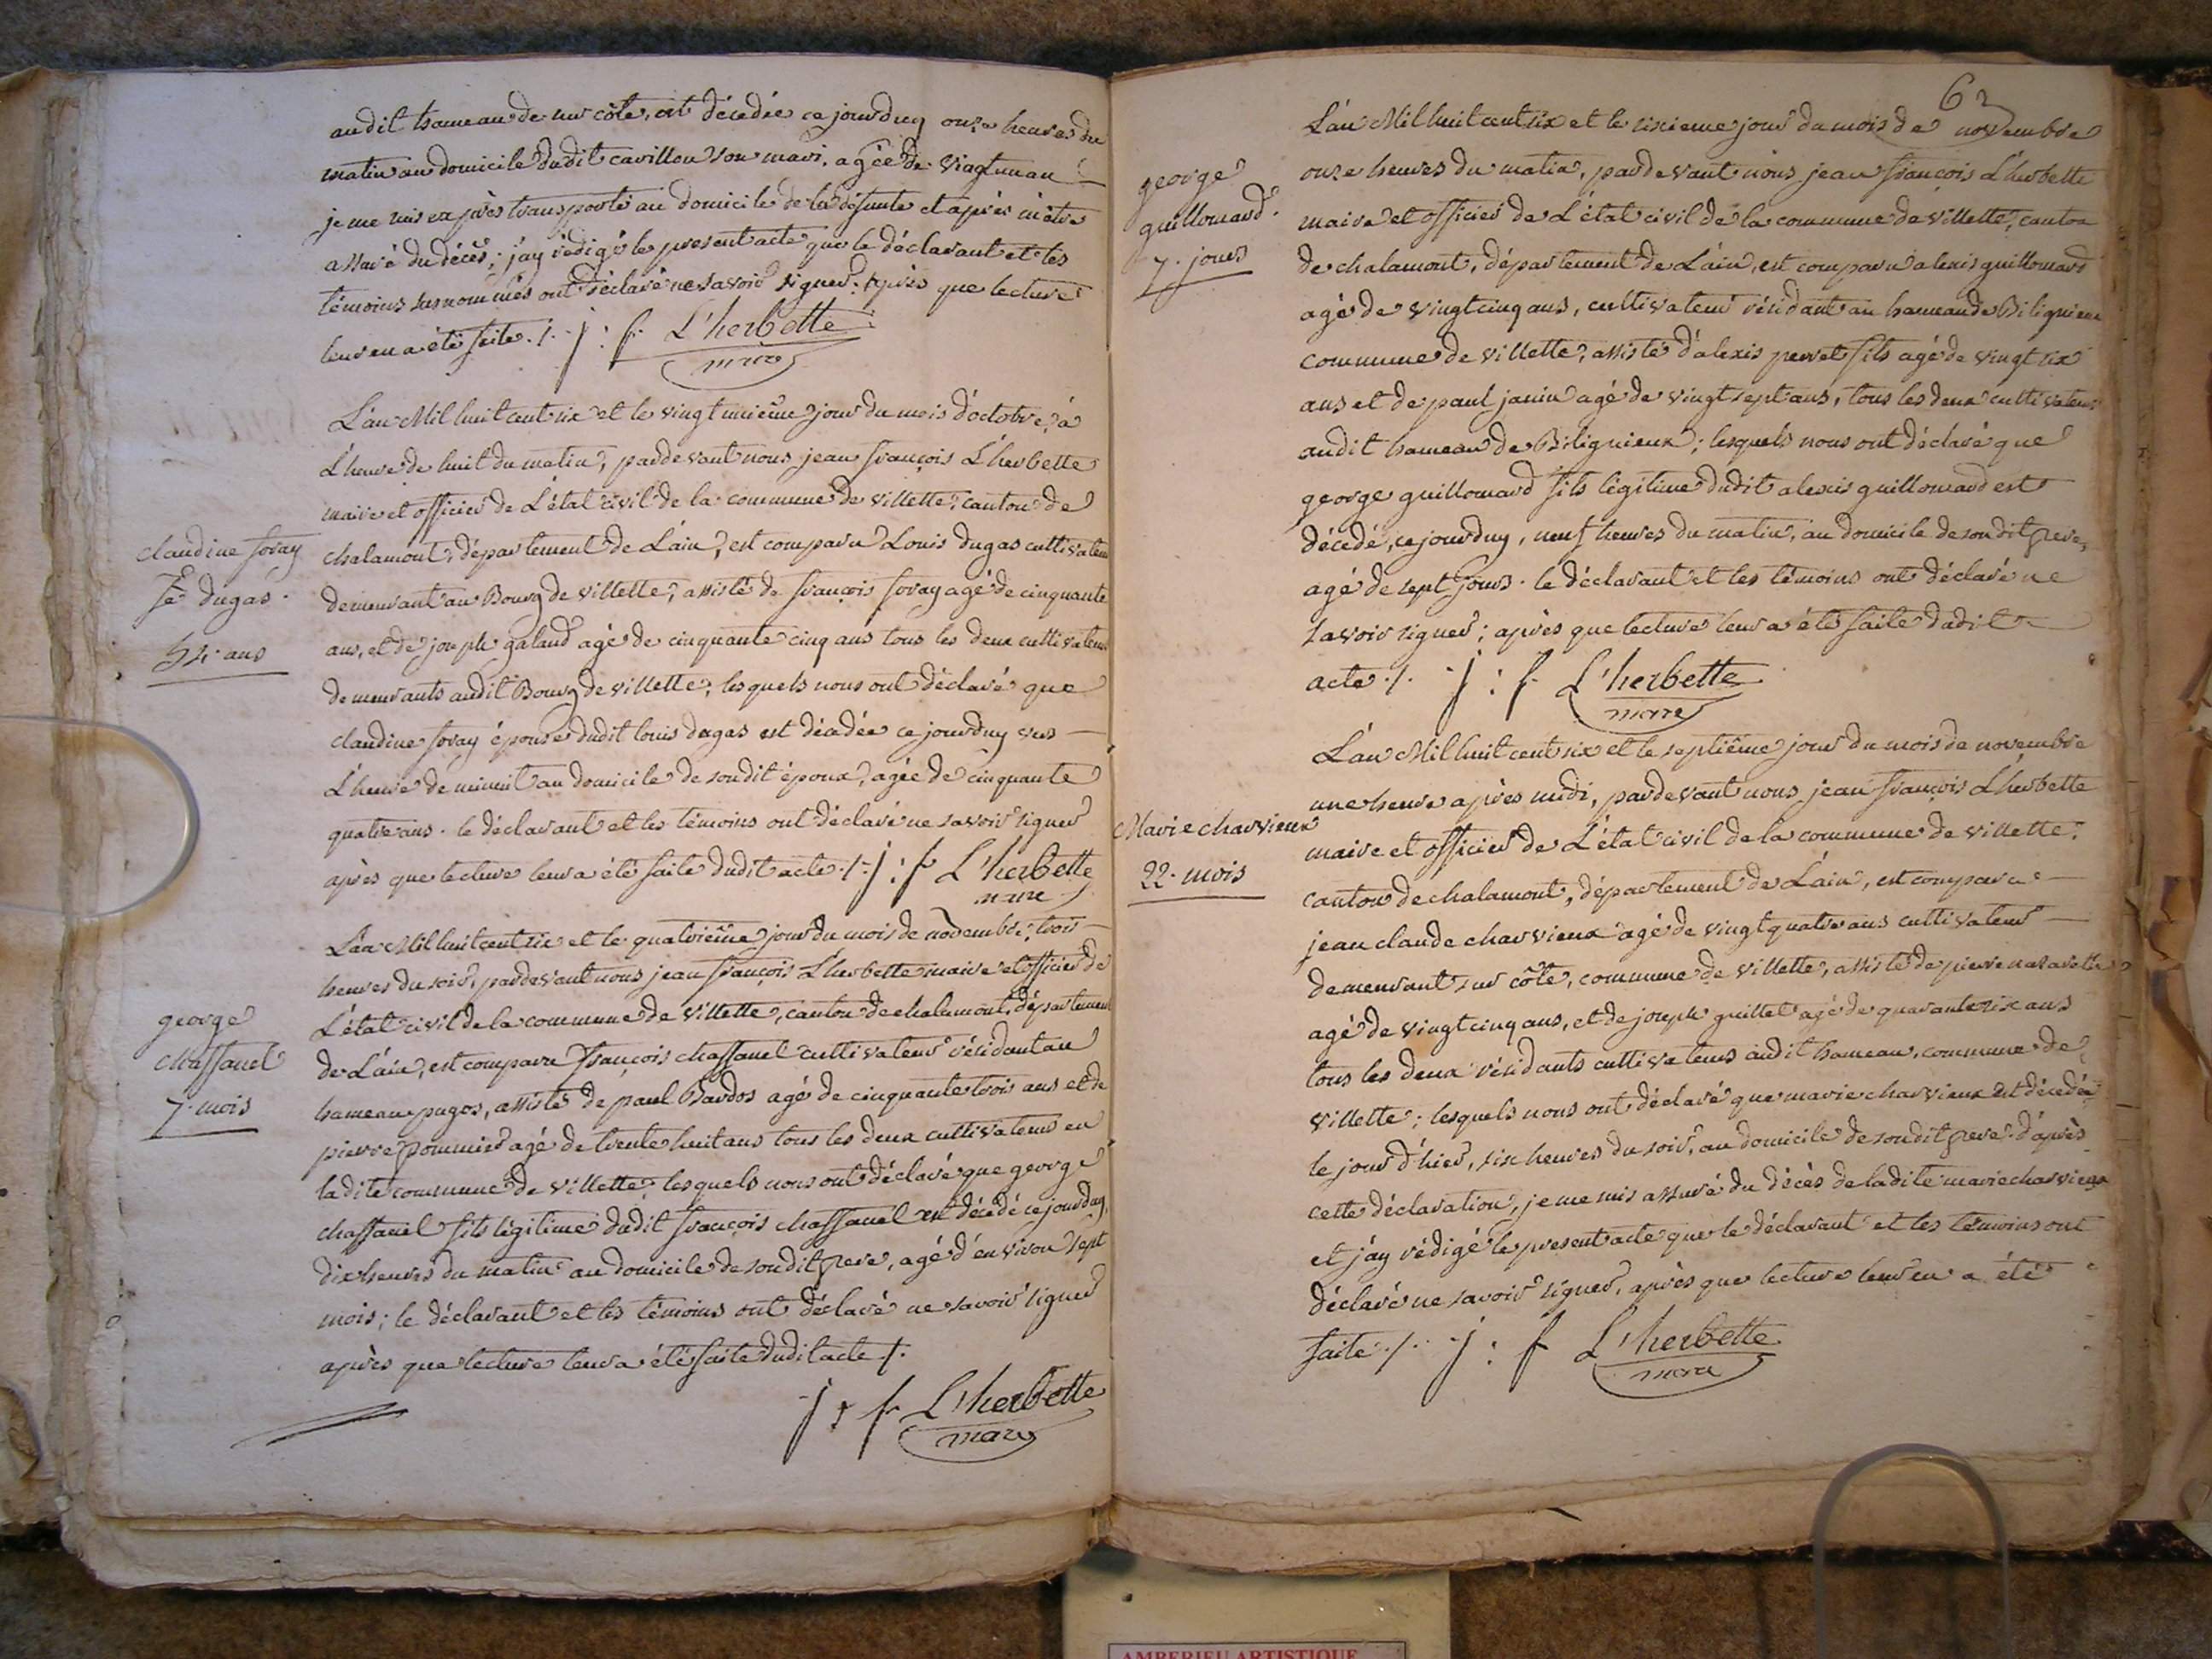 audit hameau de sur côte, est décedée ce jourduy onze heures du
matin au domicile dudit cavillon son mari, agée de vingt un an
je me suis exprès transporté au domicile de la défunte et après m'être
assuré du décès, j'ay rédigé le present acte que le déclarant et les
témoins susnommés ont déclaré ne savoir signer. après que lecture
leur en a été faite ./. j : f. L'herbette
maire
L'an Mil huit cent six et le vingt unième jour du mois d'octobre, à
L'heure de huit du matin, pardevant nous jean françois L'herbette
maire et officier de L'état civil de la commune de villette, canton de
claudine foray
fe dugas.
54. ans
chalamont, département de L'ain, est comparu Louis dugas cultivateur
demeurant au Bourg de villette, assisté de françois foray agé de cinquante
ans, et de joseph galand agé de cinquante cinq ans tous les deux cultivateurs
demeurants audit Bourg de villette, lesquels nous ont déclaré que
claudine foray épouse dudit louis dugas est décédée ce jourduy vers
L'heure de minuit au domicile de sondit époux, agée de cinquante
quatre ans. le déclarant et les témoins ont déclaré ne savoir signer
après que lecture leur a été faite dudit acte ./. j : f L'herbette
maire
L'an Mil huit cent six et le quatrième jour du mois de novembre, trois
heures du soir, pardevant nous jean françois L'herbette maire et officier de
george
chassanel
7. mois
L'état civil de la commune de villette, canton de chalamont, département
de L'ain, est comparu françois chassanel cultivateur résidant au
hameau pugos, assisté de paul Bardos agé de cinquante trois ans et de
pierre pommier agé de trente huit ans tous les deux cultivateurs en
ladite commune de villette, lesquels nous ont déclaré que george
chassanel fils légitime dudit françois chassanel est décedé ce jourduy,
dix heures du matin au domicile de sondit pere, agé d'environ sept
mois ; le déclarant et les témoins ont déclaré ne savoir signer
après que lecture leur a été faite dudit acte ./.
j : f L'herbette
maire
62
L'an Mil huit cent six et le sixieme jour du mois de novembre
george
guillomard.
7. jours
onze heures du matin, pardevant nous jean françois L'herbette
maire et officier de L'état civil de la commune de villette, canton
de chalamont, département de L'ain, est comparu alexis guillomard
agé de vingt cinq ans, cultivateur résidant au hameau de Bilignieux
commune de villette, assisté d'alexis perret fils agé de vingt six
ans et de paul janin agé de vingt sept ans, tous les deux cultivateurs
audit hameau de Bilignieux ; lesquels nous ont déclaré que
george guillomard fils légitime dudit alexis guillomard est
décédé, ce jourduy, neuf heures du matin, au domicile de son dit pere,
agé de sept jours. le déclarant et les témoins ont déclaré ne
savoir signer ; après que lecture leur a été faite dudit
acte ./. j : f. L'herbette
maire
L'an Mil huit cent six et le septième jour du mois de novembre
une heure après midi, pardevant nous jean françois L'herbette
Marie charvieux
22. mois
maire et officier de L'état civil de la commune de villette,
canton de chalamont, département de L'ain, est comparu
jean claude charvieux agé de vingt quatre ans cultivateur
demeurant sur côte, commune de villette, assisté de pierre
agé de vingt cinq ans, et de joseph guillet agé de quarante six ans
tous les deux résidants cultivateurs audit hameau, commune de
villette ; lesquels nous ont déclaré que marie charvieux est décedée
le jour d'hier, six heures du soir, au domicile de sondit pere. d'après
cette déclaration, je me suis assuré du décès de ladite marie charvieux
et j'ay rédigé le present acte que le déclarant et les témoins ont
déclaré ne savoir signer, après que lecture leur en a été
faite ./. j : f L'herbette
maire
AMBERIEU ARTISTIQUE